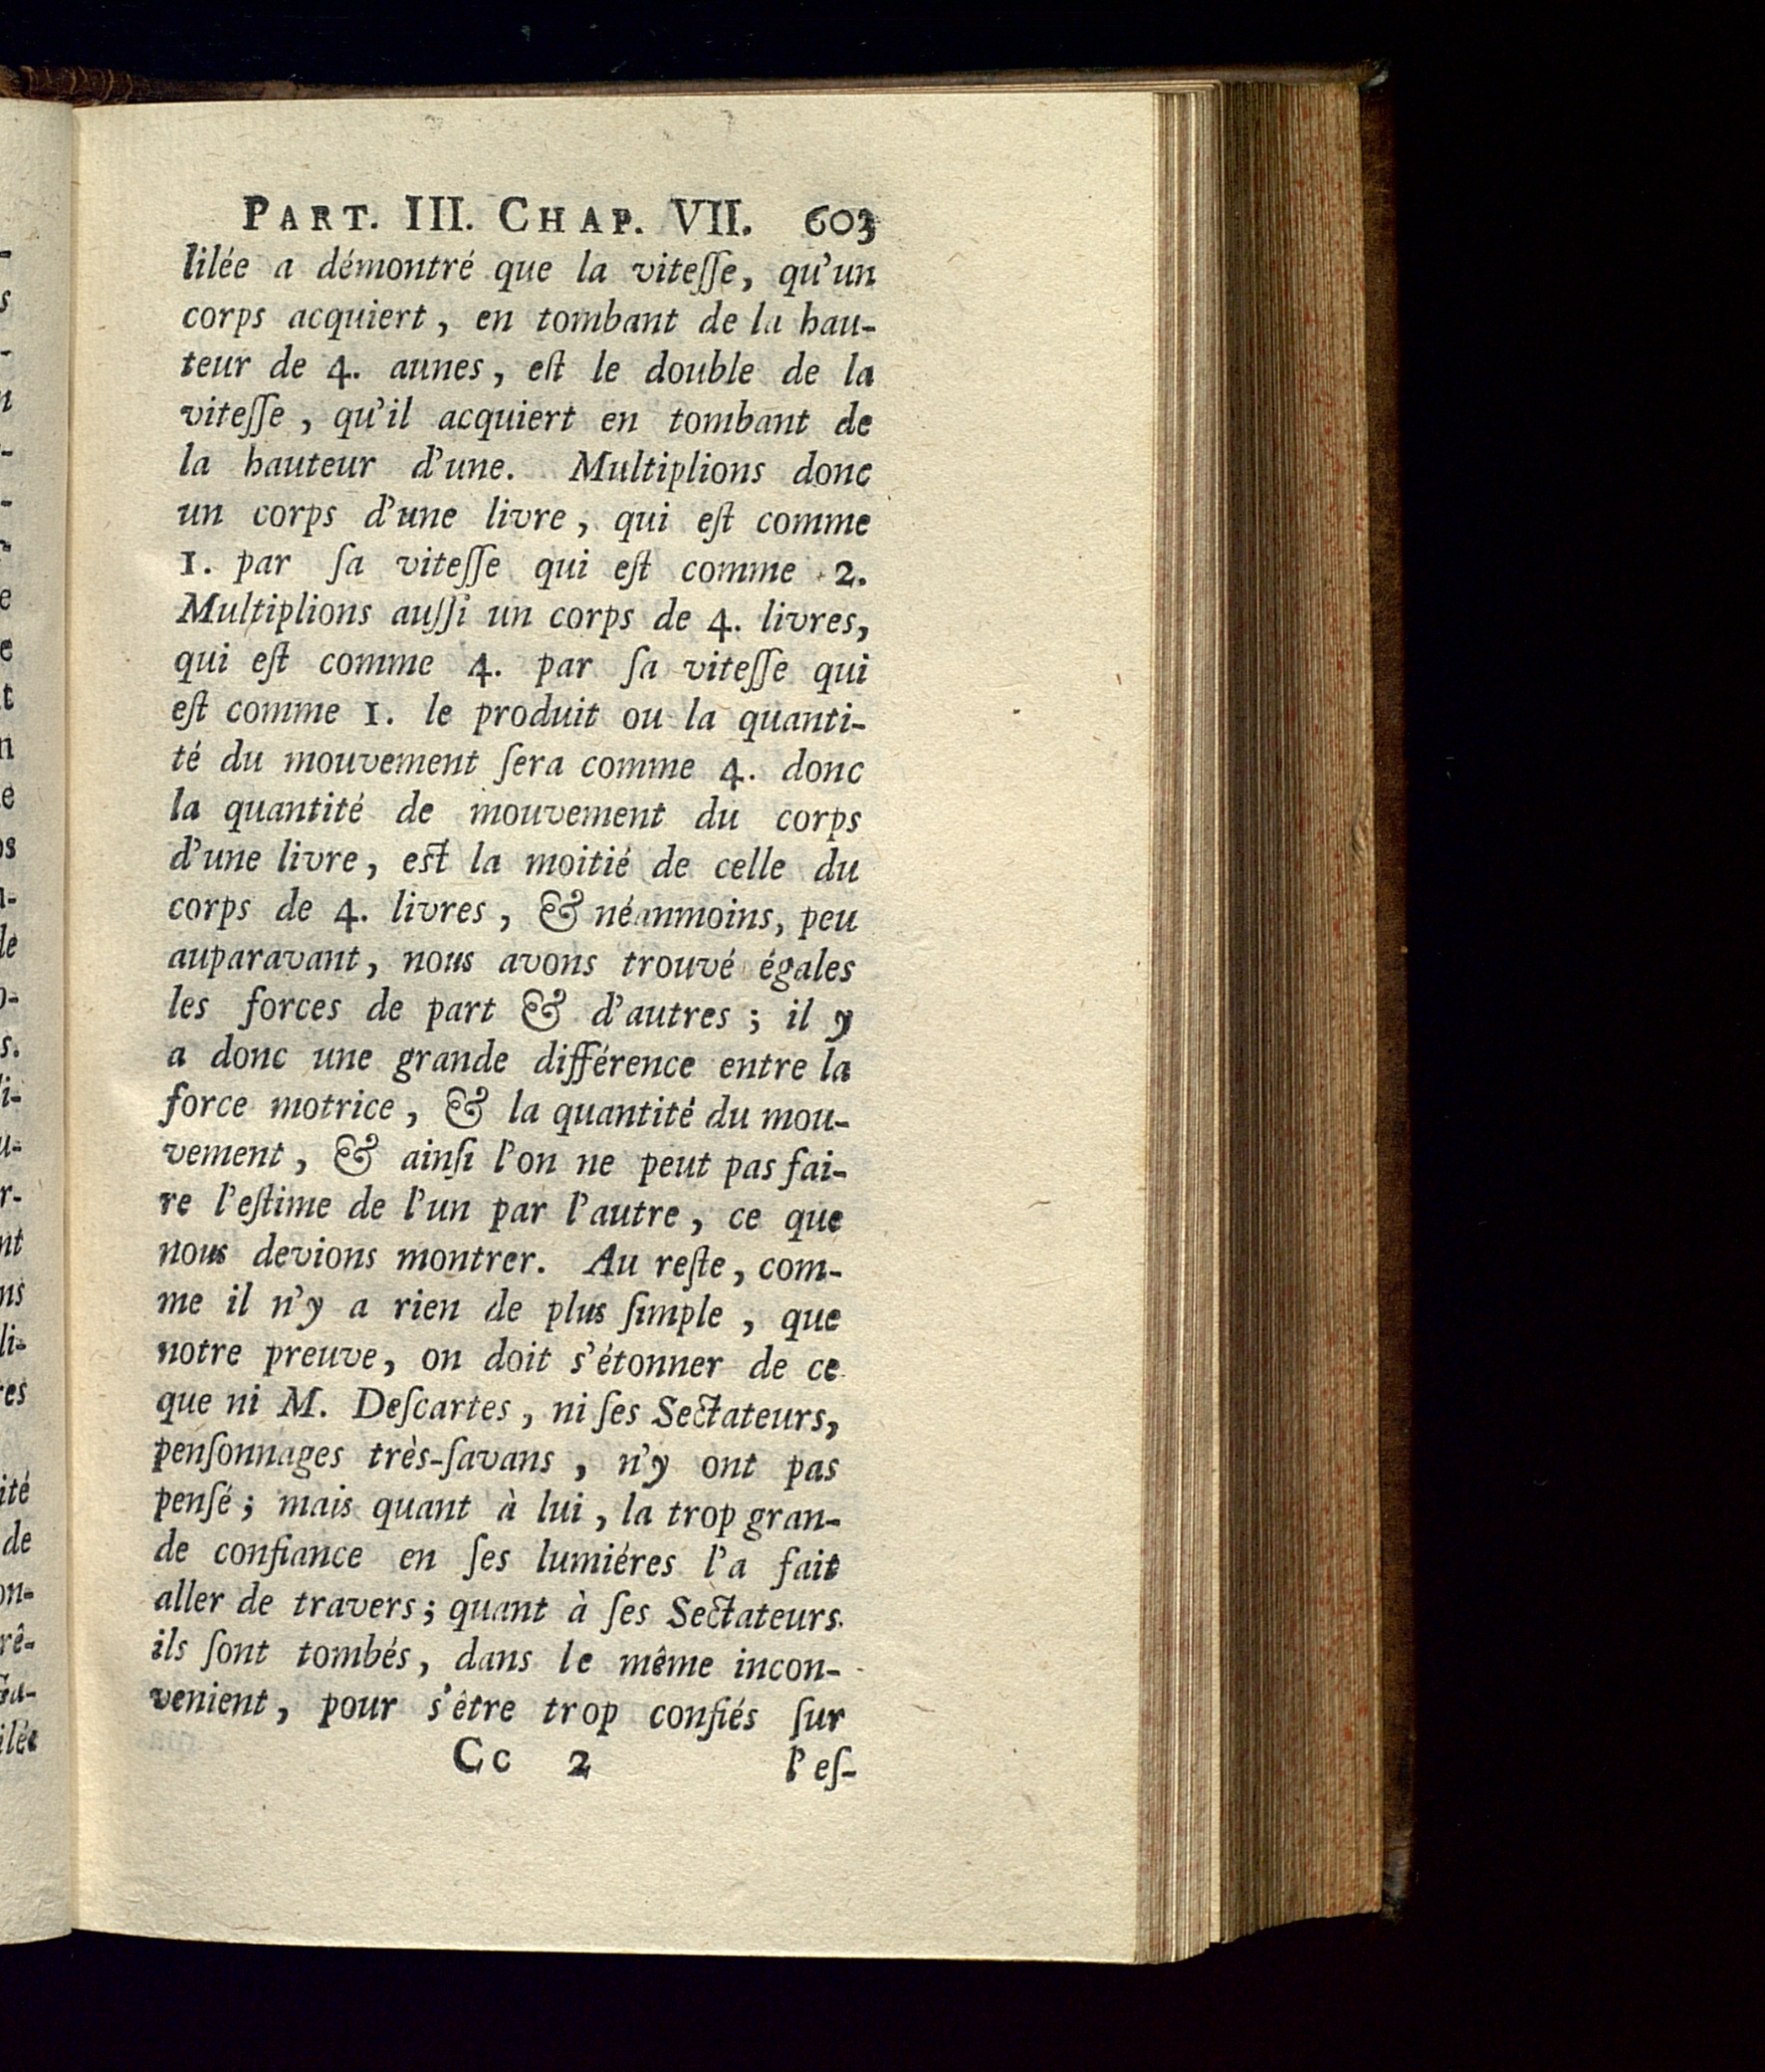 PART. III. CHAP. VII. 603
lilée a démontré que la viteſſe, qu'un
corps acquiert, en tombant de la hau-
teur de 4. aunes, eſt le double de la
viteſſe, qu'il acquiert en tombant de
la hauteur d'une. Multiplions donc
un corps d'une livre, qui eſt comme
1. par ſa viteſſe qui eſt comme 2.
Multiplions auſſi un corps de 4. livres,
qui eſt comme 4. par ſa viteſſe qui
eſt comme 1. le produit ou la quanti-
té du mouvement ſera comme 4. donc
la quantité de mouvement du corps
d'une livre, eſt la moitié de celle du
corps de 4. livres, & néanmoins, peu
auparavant, nous avons trouvé égales
les forces de part & d'autres; il y
a donc une grande différence entre la
force motrice, & la quantité du mou-
vement, & ainſi l'on ne peut pas fai-
re l'eſtime de l'un par l'autre, ce que
nous devions montrer. Au reſte, com-
me il n'y a rien de plus ſimple, que
notre preuve, on doit s'étonner de ce
que ni M. Deſcartes, ni ſes Sectateurs,
penſonnages très-ſavans, n'y ont pas
penſé; mais quant à lui, la trop gran-
de confiance en ſes lumiéres l'a fait
aller de travers; quant à ſes Sectateurs.
ils ſont tombés, dans le même incon-
venient, pour s'être trop confiés ſur
Cc 2 l'eſ-